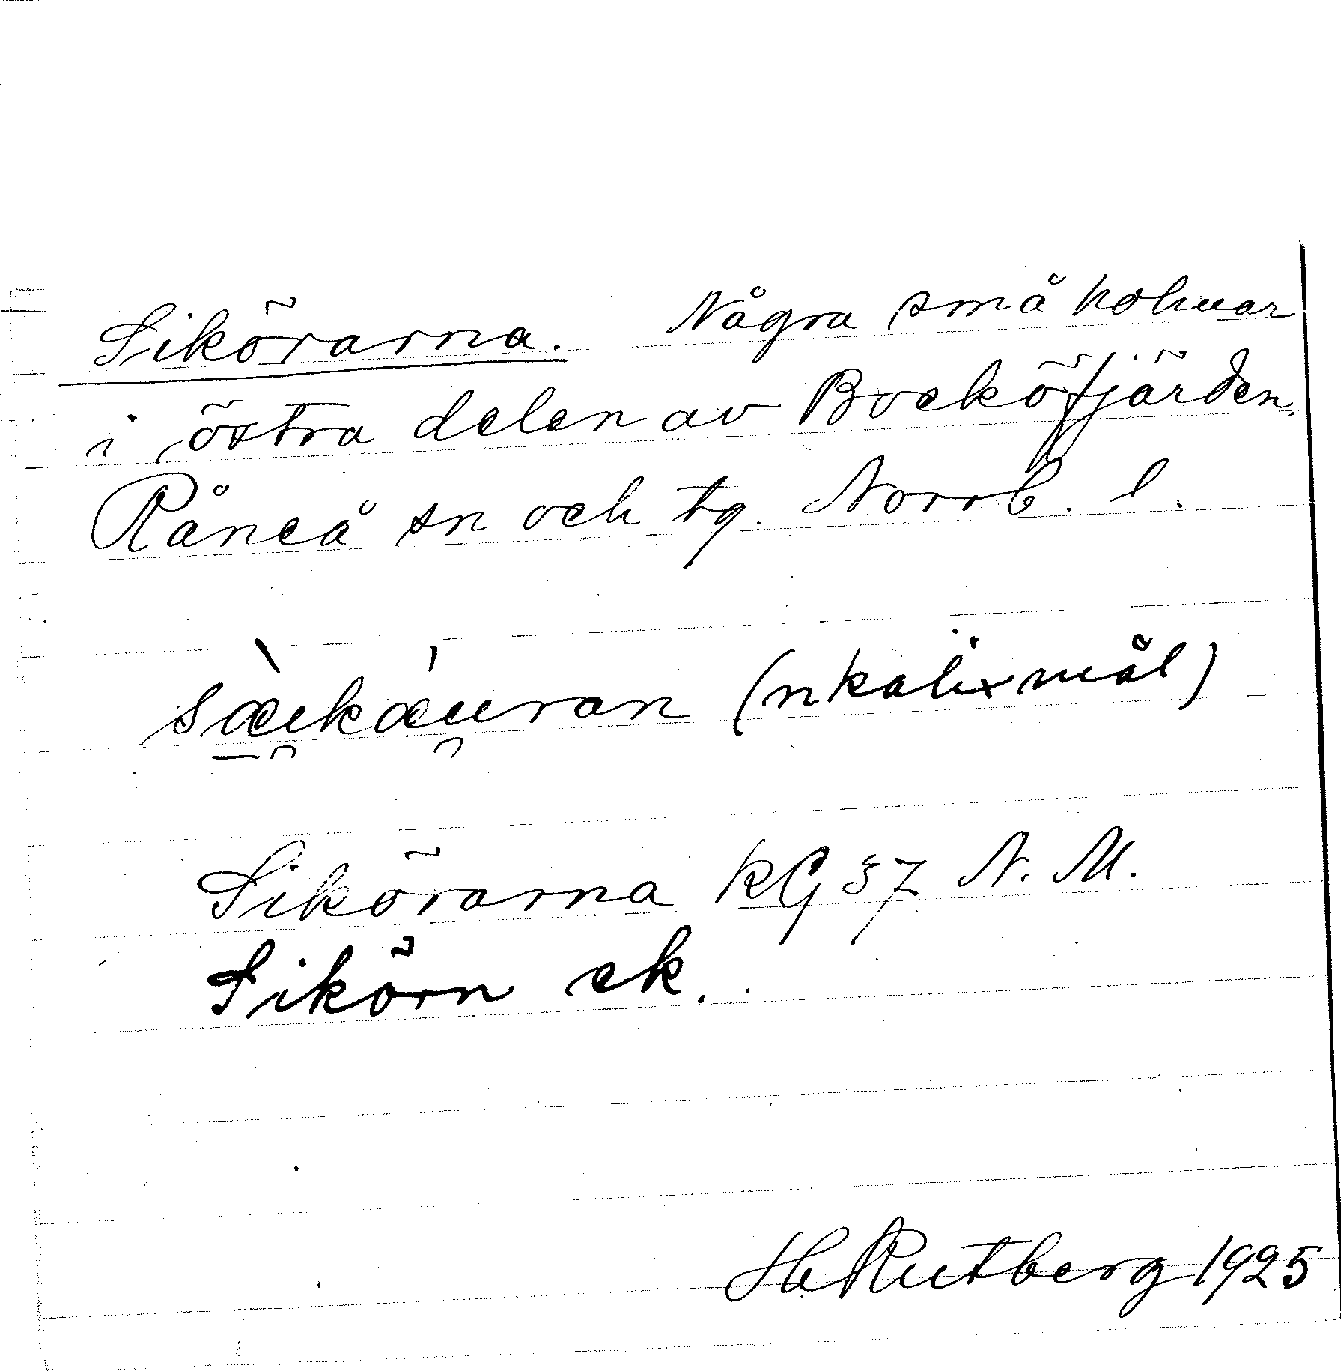 Sikörarna. Några små holmar
i östra delen av Bocköfjärden.
Råneå sn och tg. Norrb. l.
sæ̀ukǽuran (nkalixmål)
Sikörarna KG 37 N. M.
Sikörn ek.
H Rutberg 1925